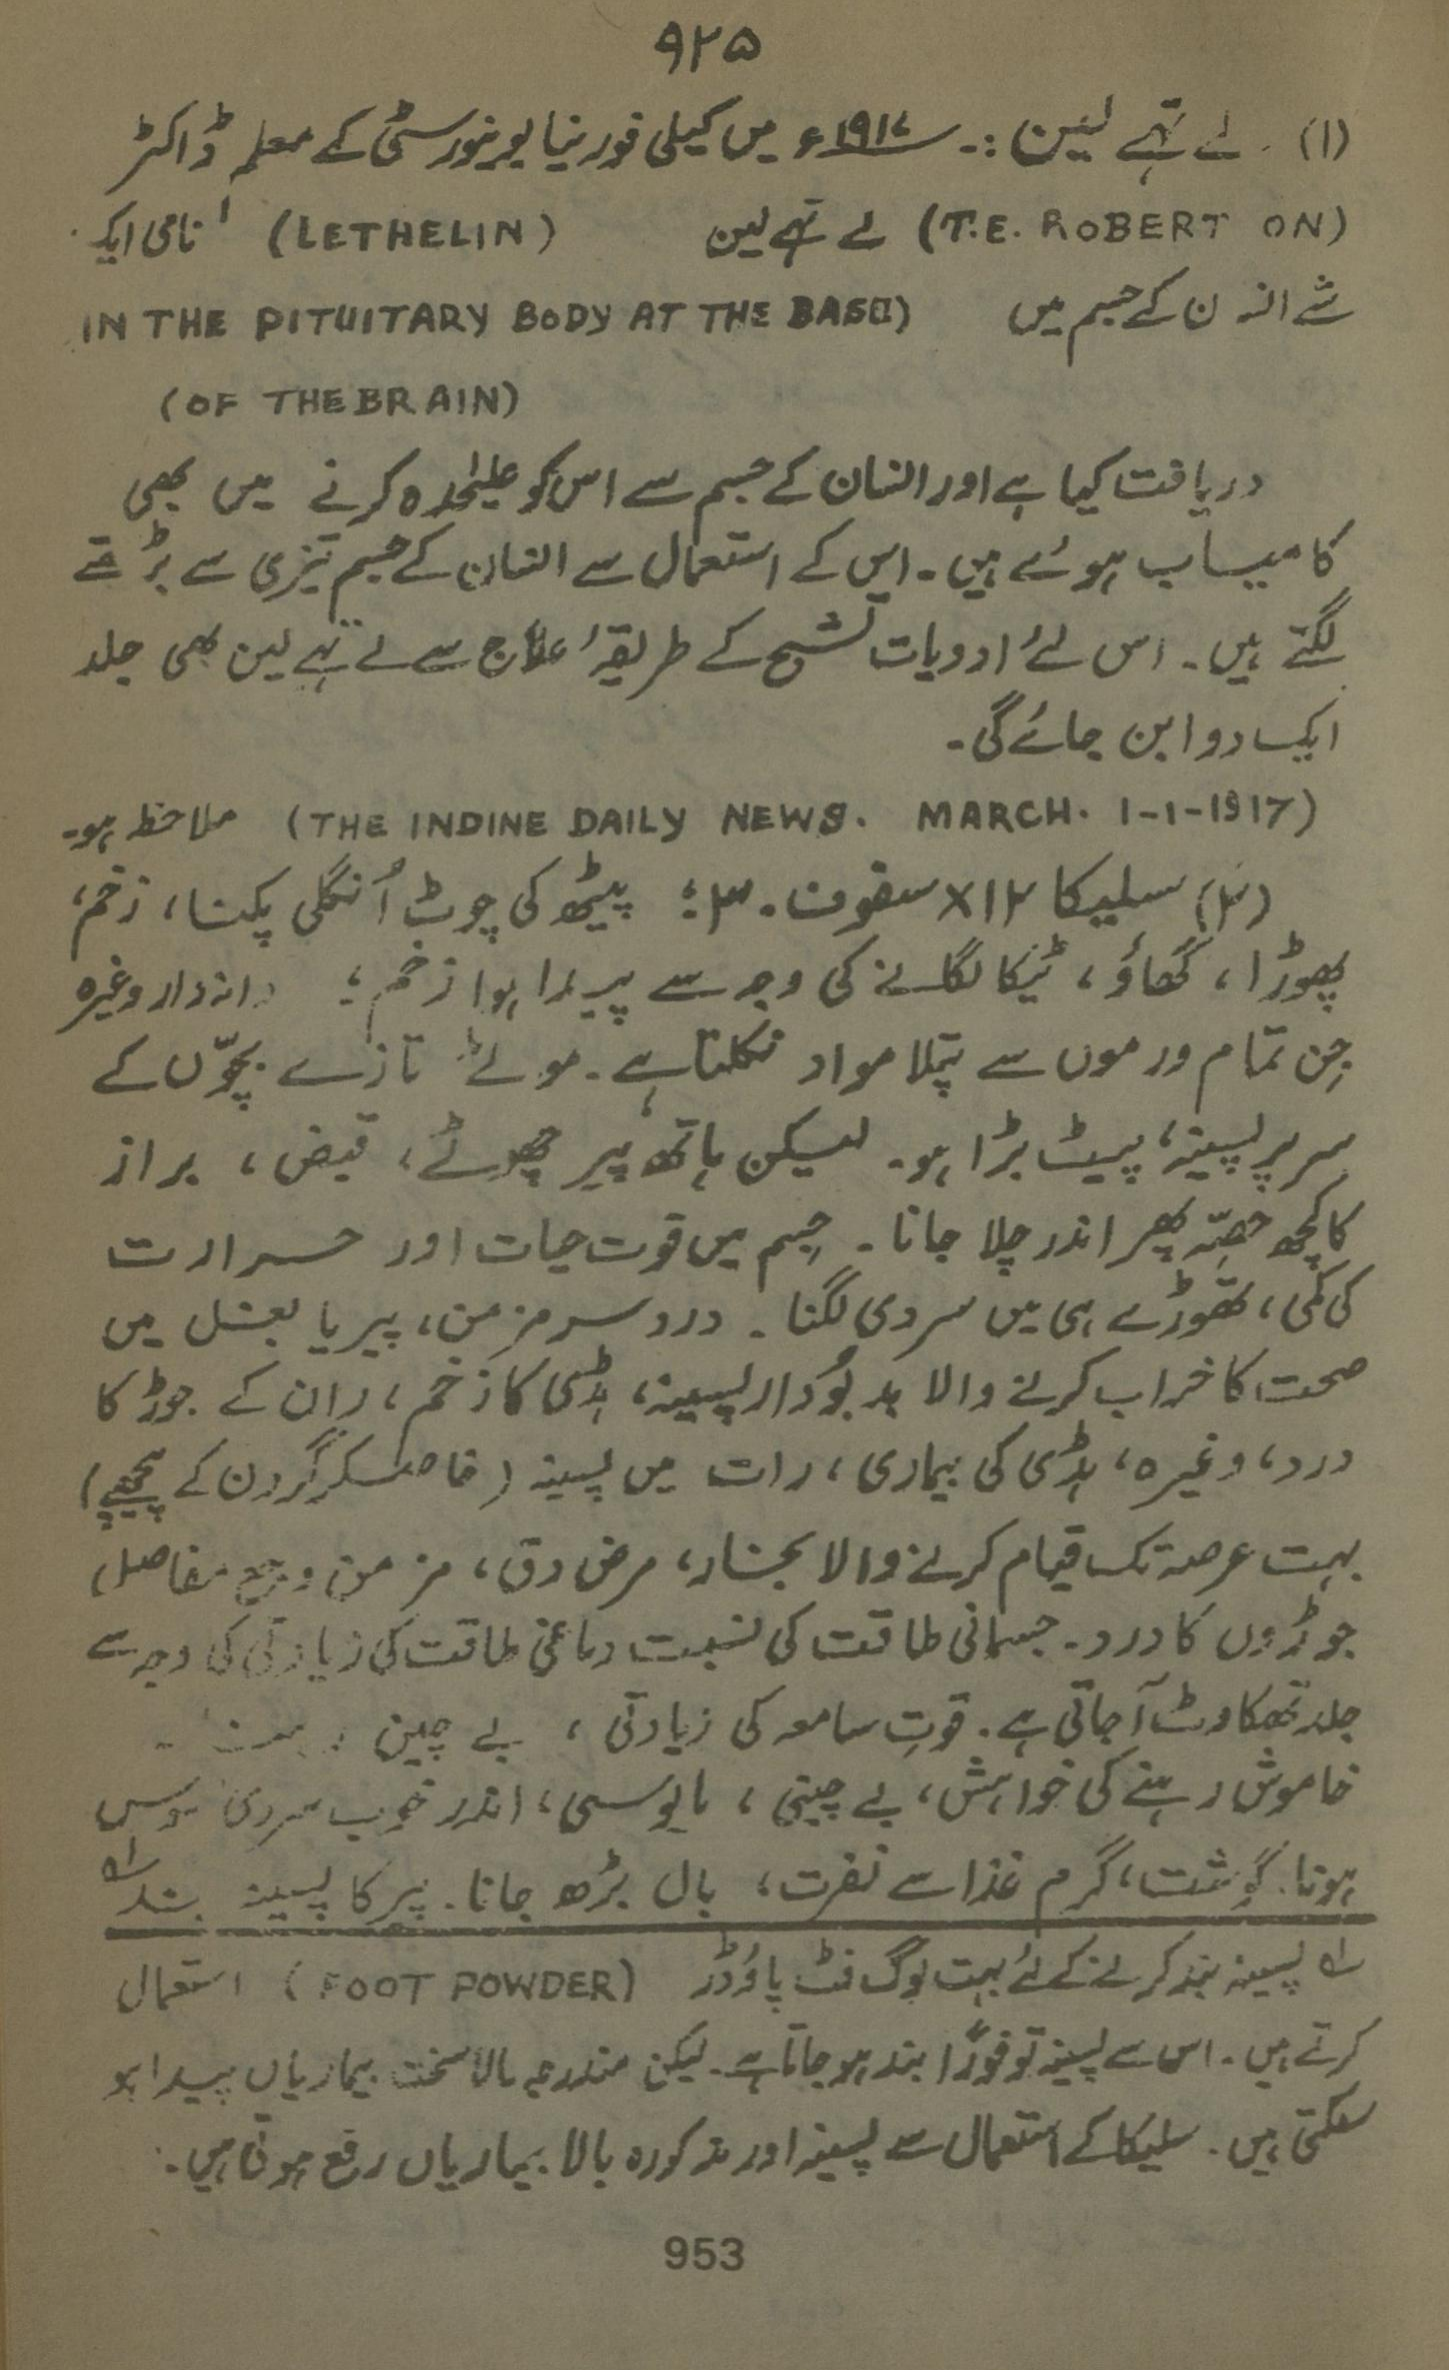 ۹۲۵
(۱) لے تھے لین :۔ ۱۹۱۷ء میں کیلی فورنیا یونیورسٹی کے معلم ڈاکٹر
(T.E. ROBERT ON) لے تھے لین (LETHELIN) نامی ایک
شے انسان کے جسم میں (IN THE PITUITARY BODY AT THE BASE
(OF THE BRAIN)
دریافت کیا ہے اور انسان کے جسم سے اس کو علیٰحدہ کرنے میں بھی
کامیاب ہوئے ہیں۔ اس کے استعمال سے انسان کے جسم تیزی سے بڑھتے
لگتے ہیں۔ اس لئے ادویات تشیح کے طریقۂ علاج سے لے تھے لین بھی جلد
ایک دوا بن جائے گی۔
(THE INDINE DAILY NEWS. MARCH. 1-1-1917) ملاحظہ ہو۔
(۲) سلیکا ۱۲x سفوف۔ ۳: پیٹھ کی چوٹ اُنگلی پکنا، زخم،
پھوڑا، گھاؤ، ٹیکا لگانے کی وجہ سے پیدا ہوا زخم؛ دانہ دار وغیرہ
جِن تمام ورموں سے پتلا مواد نکلتا ہے۔ موٹے تازے بچّوں کے
سر پر پسینہ، پیٹ بڑا ہو۔ لیکن ہاتھ پیر چھوٹے، قبض، براز
کا کچھ حصّہ پھر اندر چلا جانا۔ جسم میں قوت حیات اور حرارت
کی کمی، تھوڑے ہی میں سردی لگنا۔ درد سر مزمن، پیر یا بغل میں
صحت کا خراب کرنے والا بدبُودار پسینہ، ہڈی کا زخم، ران کے جوڑ کا
درد، وغیرہ، ہڈی کی بیماری، رات میں پسینہ (خاصکر گردن کے پیچھے)
بہت عرصہ تک قیام کرنے والا بخار، مرض دق، مزمن وجع مفاصل،
جوڑوں کا درد۔ جسمانی طاقت کی نسبت دماغی طاقت کی زیادتی کی وجہ سے
جلد تھکاوٹ آ جاتی ہے۔ قوتِ سامعہ کی زیادتی، بے چین
خاموش رہنے کی خواہش، بے چینی، مایوسی، اندر خوب سردی
ہونا۔ گوشت، گرم غذا سے نفرت، بال بڑھ جانا۔ پیر کا پسینہ بند ؂۱
؂۱ پسینہ بند کرنے کے لئے بہت لوگ فٹ پاؤڈر (FOOT POWDER) استعمال
کرتے ہیں۔ اس سے پسینہ تو فوراً بند ہو جاتا ہے۔ لیکن مندرجہ بالا سخت بیماریاں پیدا ہو
سکتی ہیں۔ سلیکا کے استعمال سے پسینہ اور مذکورہ بالا بیماریاں رفع ہوتی ہیں۔
953